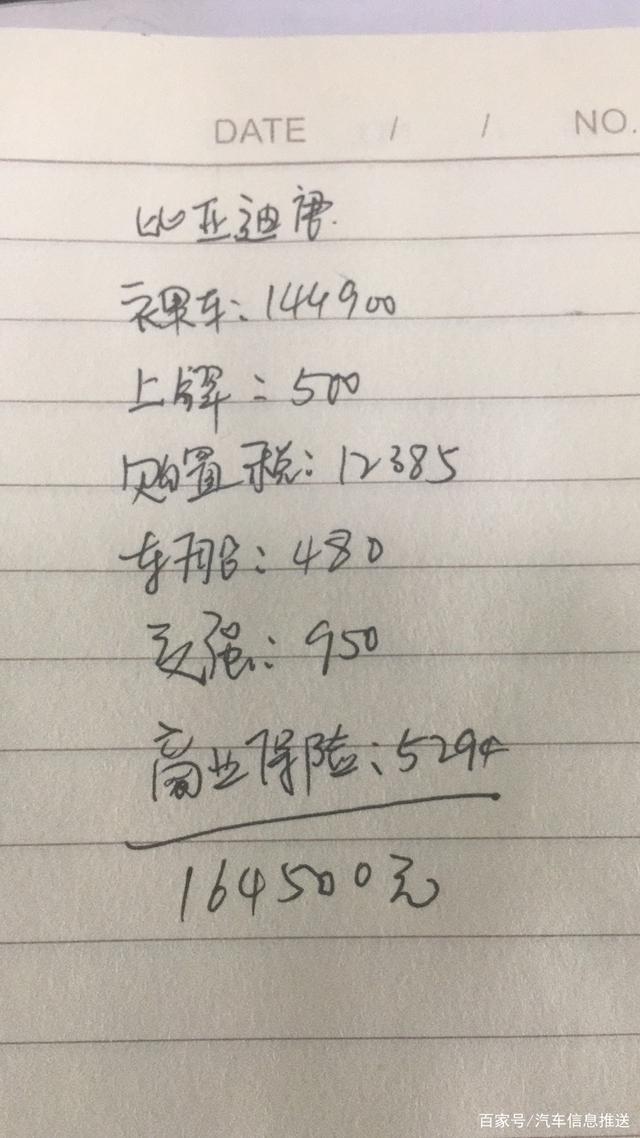 DATE / / NO.
比亚迪唐.
裸车:144900
上牌:500
购置税:12385
车船:480
交强:950
商业保险:5294
164500元
百家号/汽车信息推送